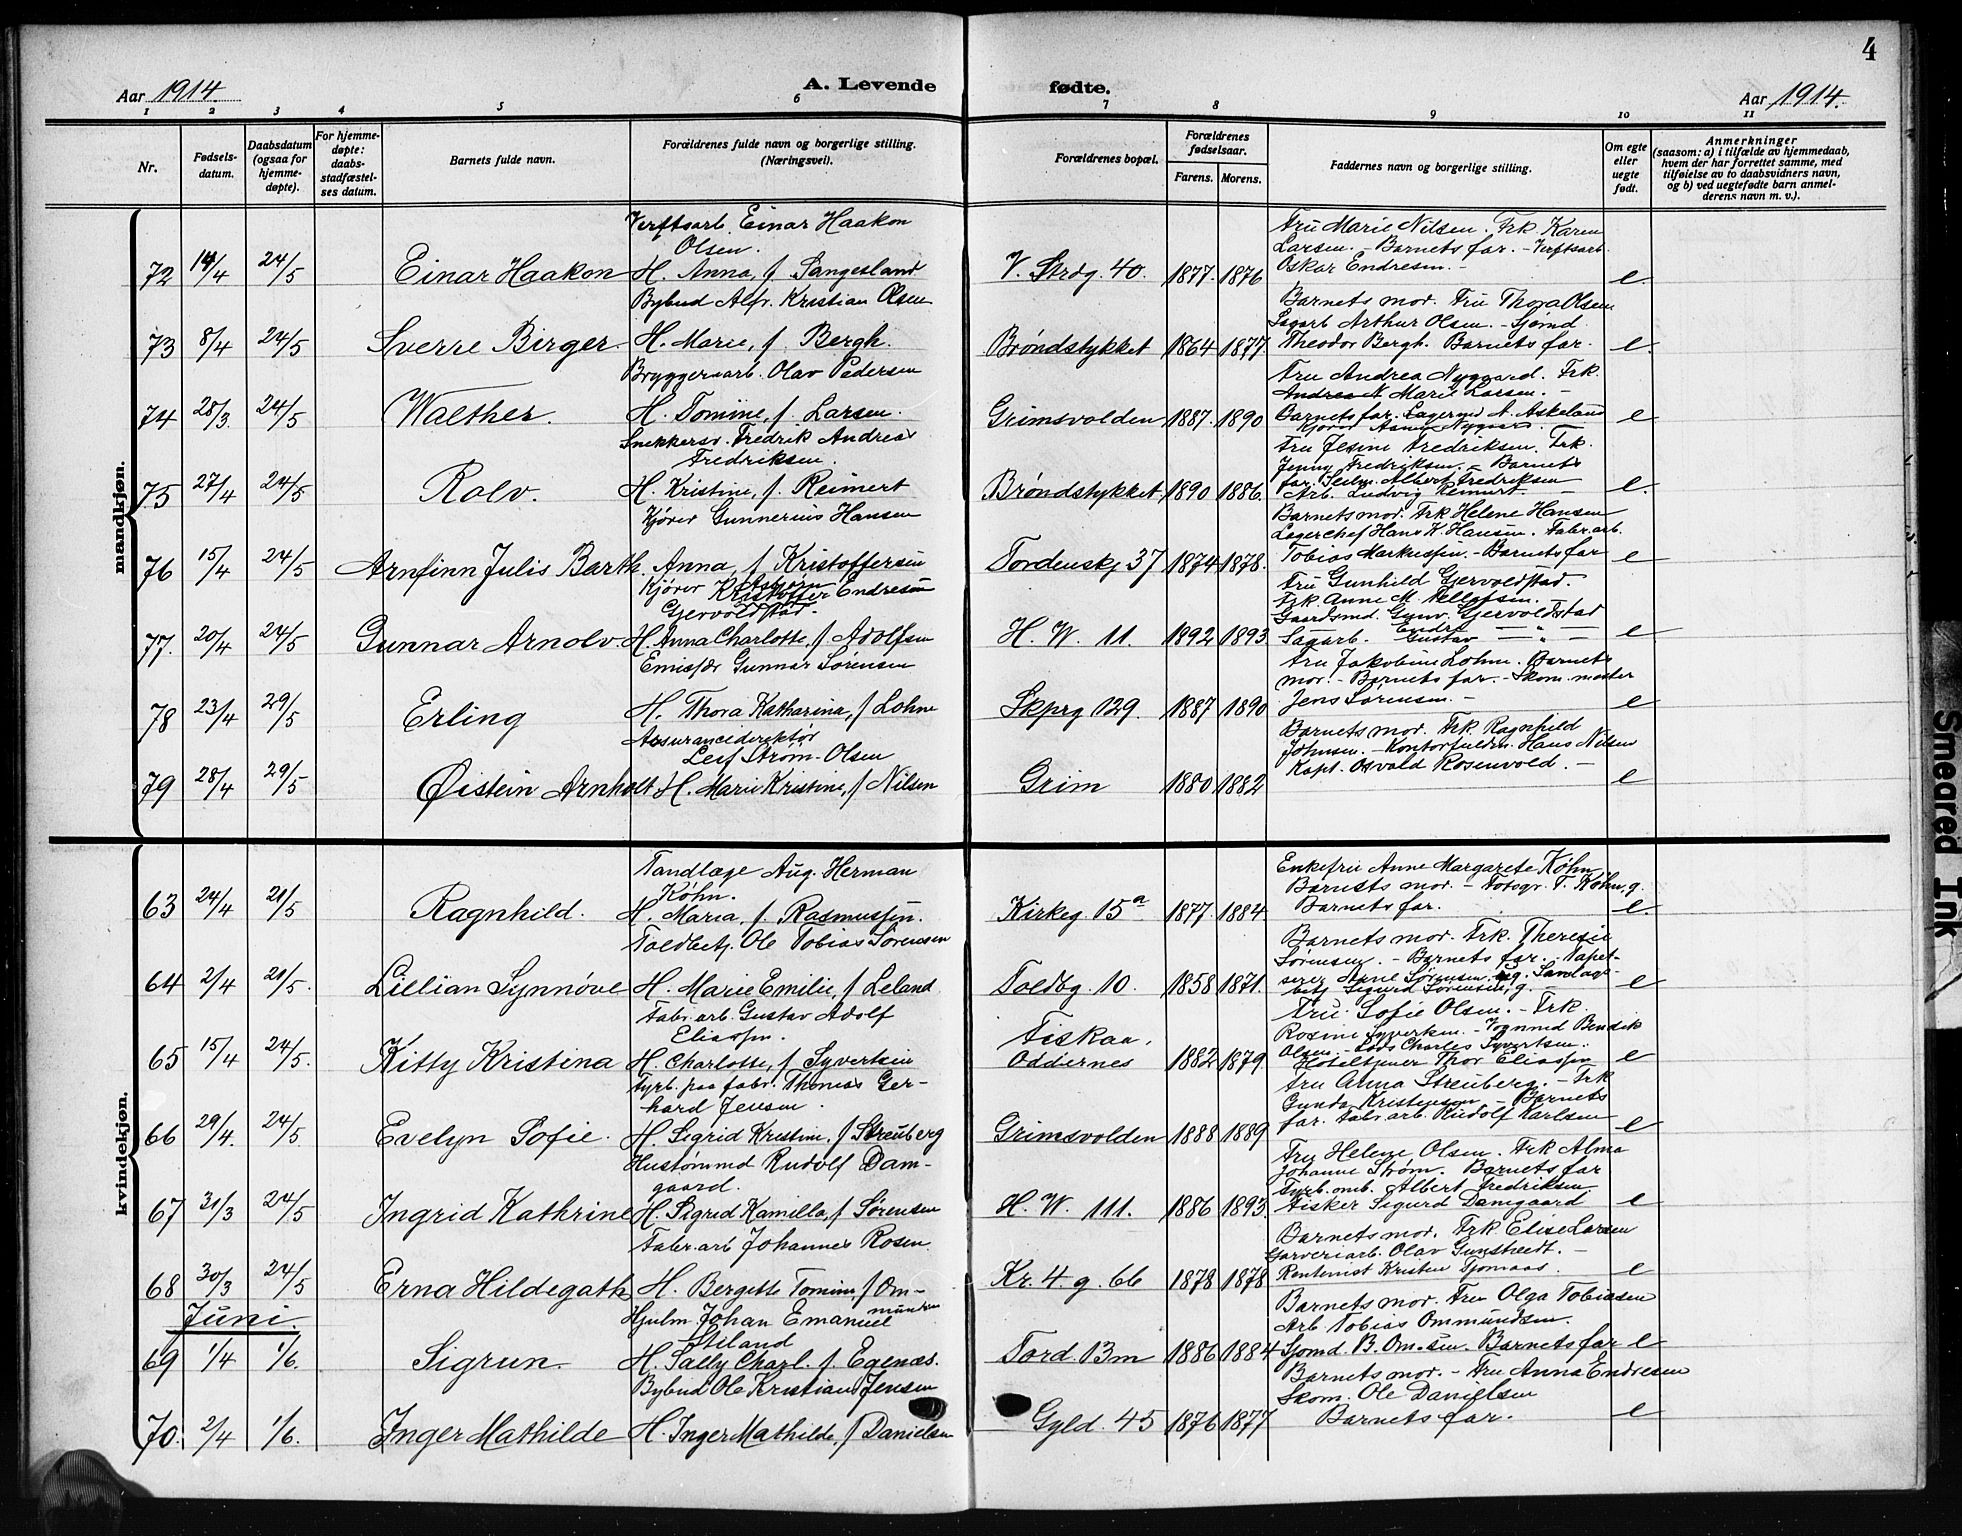 4
Aar 1914.
A. Levende fødte.
Aar 1914.
1 2 3 4 5 6 7 8 9 10 11
Nr.
Fødsels-
datum.
Daabsdatum
(ogsaa for
hjemme-
døpte).
For hjemme-
døpte:
daabs-
stadfæstel-
ses datum.
Barnets fulde navn.
Forældrenes fulde navn og borgerlige stilling.
(Næringsvei).
Forældrenes bopæl.
Forældrenes
fødselsaar.
Farens. Morens.
Faddernes navn og borgerlige stilling.
Om egte
eller
uegte
født.
Anmerkninger
(saasom: a) i tilfælde av hjemmedaab,
hvem der har forrettet samme, med
tilføielse av to daabsvidners navn,
og b) ved uegtefødte barn anmel-
derens navn m. v.).
mandkjøn.
72 14/4 24/5 Einar Haakon
Verftsarb. Einar Haakon
Olsen.
H. Anna, f. Sangesland
V. Strdg. 40. 1877. 1876
Fru Marie Nilsen. Frk. Karen
Larsen. - Barnets far. - Verftsarb.
Oskar Endresen. -
e.
73 8/4 24/5 Sverre Birger.
Bybud Alfr. Kristian Olsen
H. Marie, f. Bergh.
Brøndstykket 1864 1877.
Barnets mor. Fru Thora Olsen
Sagarb Arthur Olsen. - Sjømd
Theodor Bergh. Barnets far.
e.
74 28/3 24/5 Walther.
Bryggeriarb. Olav Pedersen
H. Tomine, f. Larsen.
Grimsvolden 1887. 1890
Fru Andrea Nygaard. Frk.
Marie Larsen. -
Barnets far. Lagermd N. Askeland
Kjører Nygaard.
e
75 27/4 24/5 Rolv.
Snekkersv. Fredrik Andreas
Fredriksen.
H. Kristine, f. Reimert
Brøndstykket, 1890 1886.
Fru Jesine Fredriksen. Frk.
Jenny Fredriksen. - Barnets
far. Albert Fredriksen
Arb. Ludvig Reimert. -
e.
76 15/4 24/5 Arnfinn Julis Barth.
Kjører Gunnerius Hansen
Anna, f. Kristoffersen
Tordenskj 37 1874 1878.
Barnets mor. Frk Helene Hansen
Lagerchef Hans K. Hansen. Fabr. arb.
Tobias Markussen. - Barnets far
e
77. 20/4 24/5 Gunnar Arnolv.
Kjører Kristoffer Asbjørn Endresen
Gjervoldstad.
H. Anna Charlotte, f. Adolfsen
H. W. 11. 1892 1893.
Fru Gunhild Gjervoldstad.
Frk. Anne M. Tellefsen. -
Gaardsmd. Gunv. Gjervoldstad
Endre — " —
Sagarb. Gustav — " —
e
78 23/4 29/5 Erling
Emissær Gunnar Sørensen
H. Thora Katharina, f Lohne
Skprg 129. 1887 1890
Fru Jakobine Lohne. Barnets
mor. - Barnets far. - Skom. mester
Jens Sørensen. -
e
79 28/4 29/5 Øistein Arnholt
Assurancedirektør
Leif Strøm-Olsen
H. Marie Kristine, f Nilsen
Grim 1880 1882
Barnets mor. Frk. Ragnhild
Johnsen. - Kontorfuldm. Hans Nilsen
Kapt. Osvald Rosenvold. -
e
kvindekjøn.
63 24/4 21/5 Ragnhild.
Tandlæge Aug. Herman
Køhn.
H. Maria, f. Rasmussen.
Kirkeg. 15a 1877. 1884
Enkefru Anne Margarete Køhn
Barnets mor. - Fotogr. T. Køhn, g.
Barnets far.
e.
64 2/4 21/5. Lillian Synnøve
Toldbetj. Ole Tobias Sørensen
H. Marie Emilie, f Leland
Toldbg. 10. 1858 1871.
Barnets mor. Frk. Theresie
Sørensen. - Barnets far. - Tapet-
serer Arne Sørensen, ug.
Sigurd Sørensen, g. -
e
65 15/4 24/5. Kitty Kristina
Fabr. arb. Gustav Adolf
Eliassen.
H. Charlotte, f Syvertsen
Fiskaa,
Oddernes 1882 1879.
Fru Sofie Olsen. - Frk.
Rosine Syvertsen. - Vognmd Bendik
Olsen. - Lods Charles Syvertsen.
Hoteltjener Thor Eliassen
e
66 29/4. 24/5 Evelyn Sofie.
Fyrb. paa fabr. Thomas Ger-
hard Jensen.
H. Sigrid Kristine, f Streuberg
Grimsvolden 1888 1889
Fru Alma Streuberg. - Frk
Gunda Kristensen. - Barnets
far. Fabr. arb. Rudolf Karlsen
e
67 31/3 24/5 Ingrid Kathrine
Hustømmd Rudolf Dam-
gaard.
H. Sigrid Kamilla, f Sørensen
H. W. 111. 1886 1893.
Fru Helene Olsen. Frk Alma
Johanne Strøm. Barnets far
Fyrb. omb. Albert Fredriksen
Fisker Sigurd Damgaard
e
68 30/3 24/5 Erna Hildegath
Fabr. arb Johannes Rosen.
H. Bergette Tomine f Om-
mundsen
Kr. 4. g. 66 1878 1878
Barnets mor. Frk Elise Larsen
Garveriarb. Olav Gunstveit. -
Rentenist Kristen Tjomaas.
e
Juni.
69 1/4 1/6. Sigrun.
Hjulm. Johan Emanuel
Stiland
H. Sally Charl. f. Egenæs.
Tord. 13m 1886 1884
Barnets mor. Fru Olga Tobiasen
Arb Tobias Ommundsen.
Sjømd. B. Om.sen. Barnets far
e
70. 2/4 1/6. Inger Mathilde
Bybud Ole Kristian Jensen
H. Inger Mathilde, f Danielsen
Gyld. 45 1876 1877
Barnets mor. - Fru Anna Endresen
Skom. Ole Danielsen
Barnets far.
e
Smeared Ink